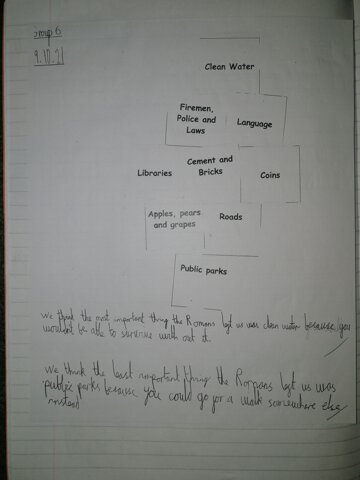 9.12.21
Clean Water
Firemen,
Police and
Laws
Language
Libraries
Cement and
Bricks
Coins
Apples, pears
and grapes
Roads
Public parks
We think the most important thing the Romans left us was clean water because you
wouldnt be able to survive with out it.
We think the least important thing the Romans left us was
public parks because you could go for a walk somewhere else
instead